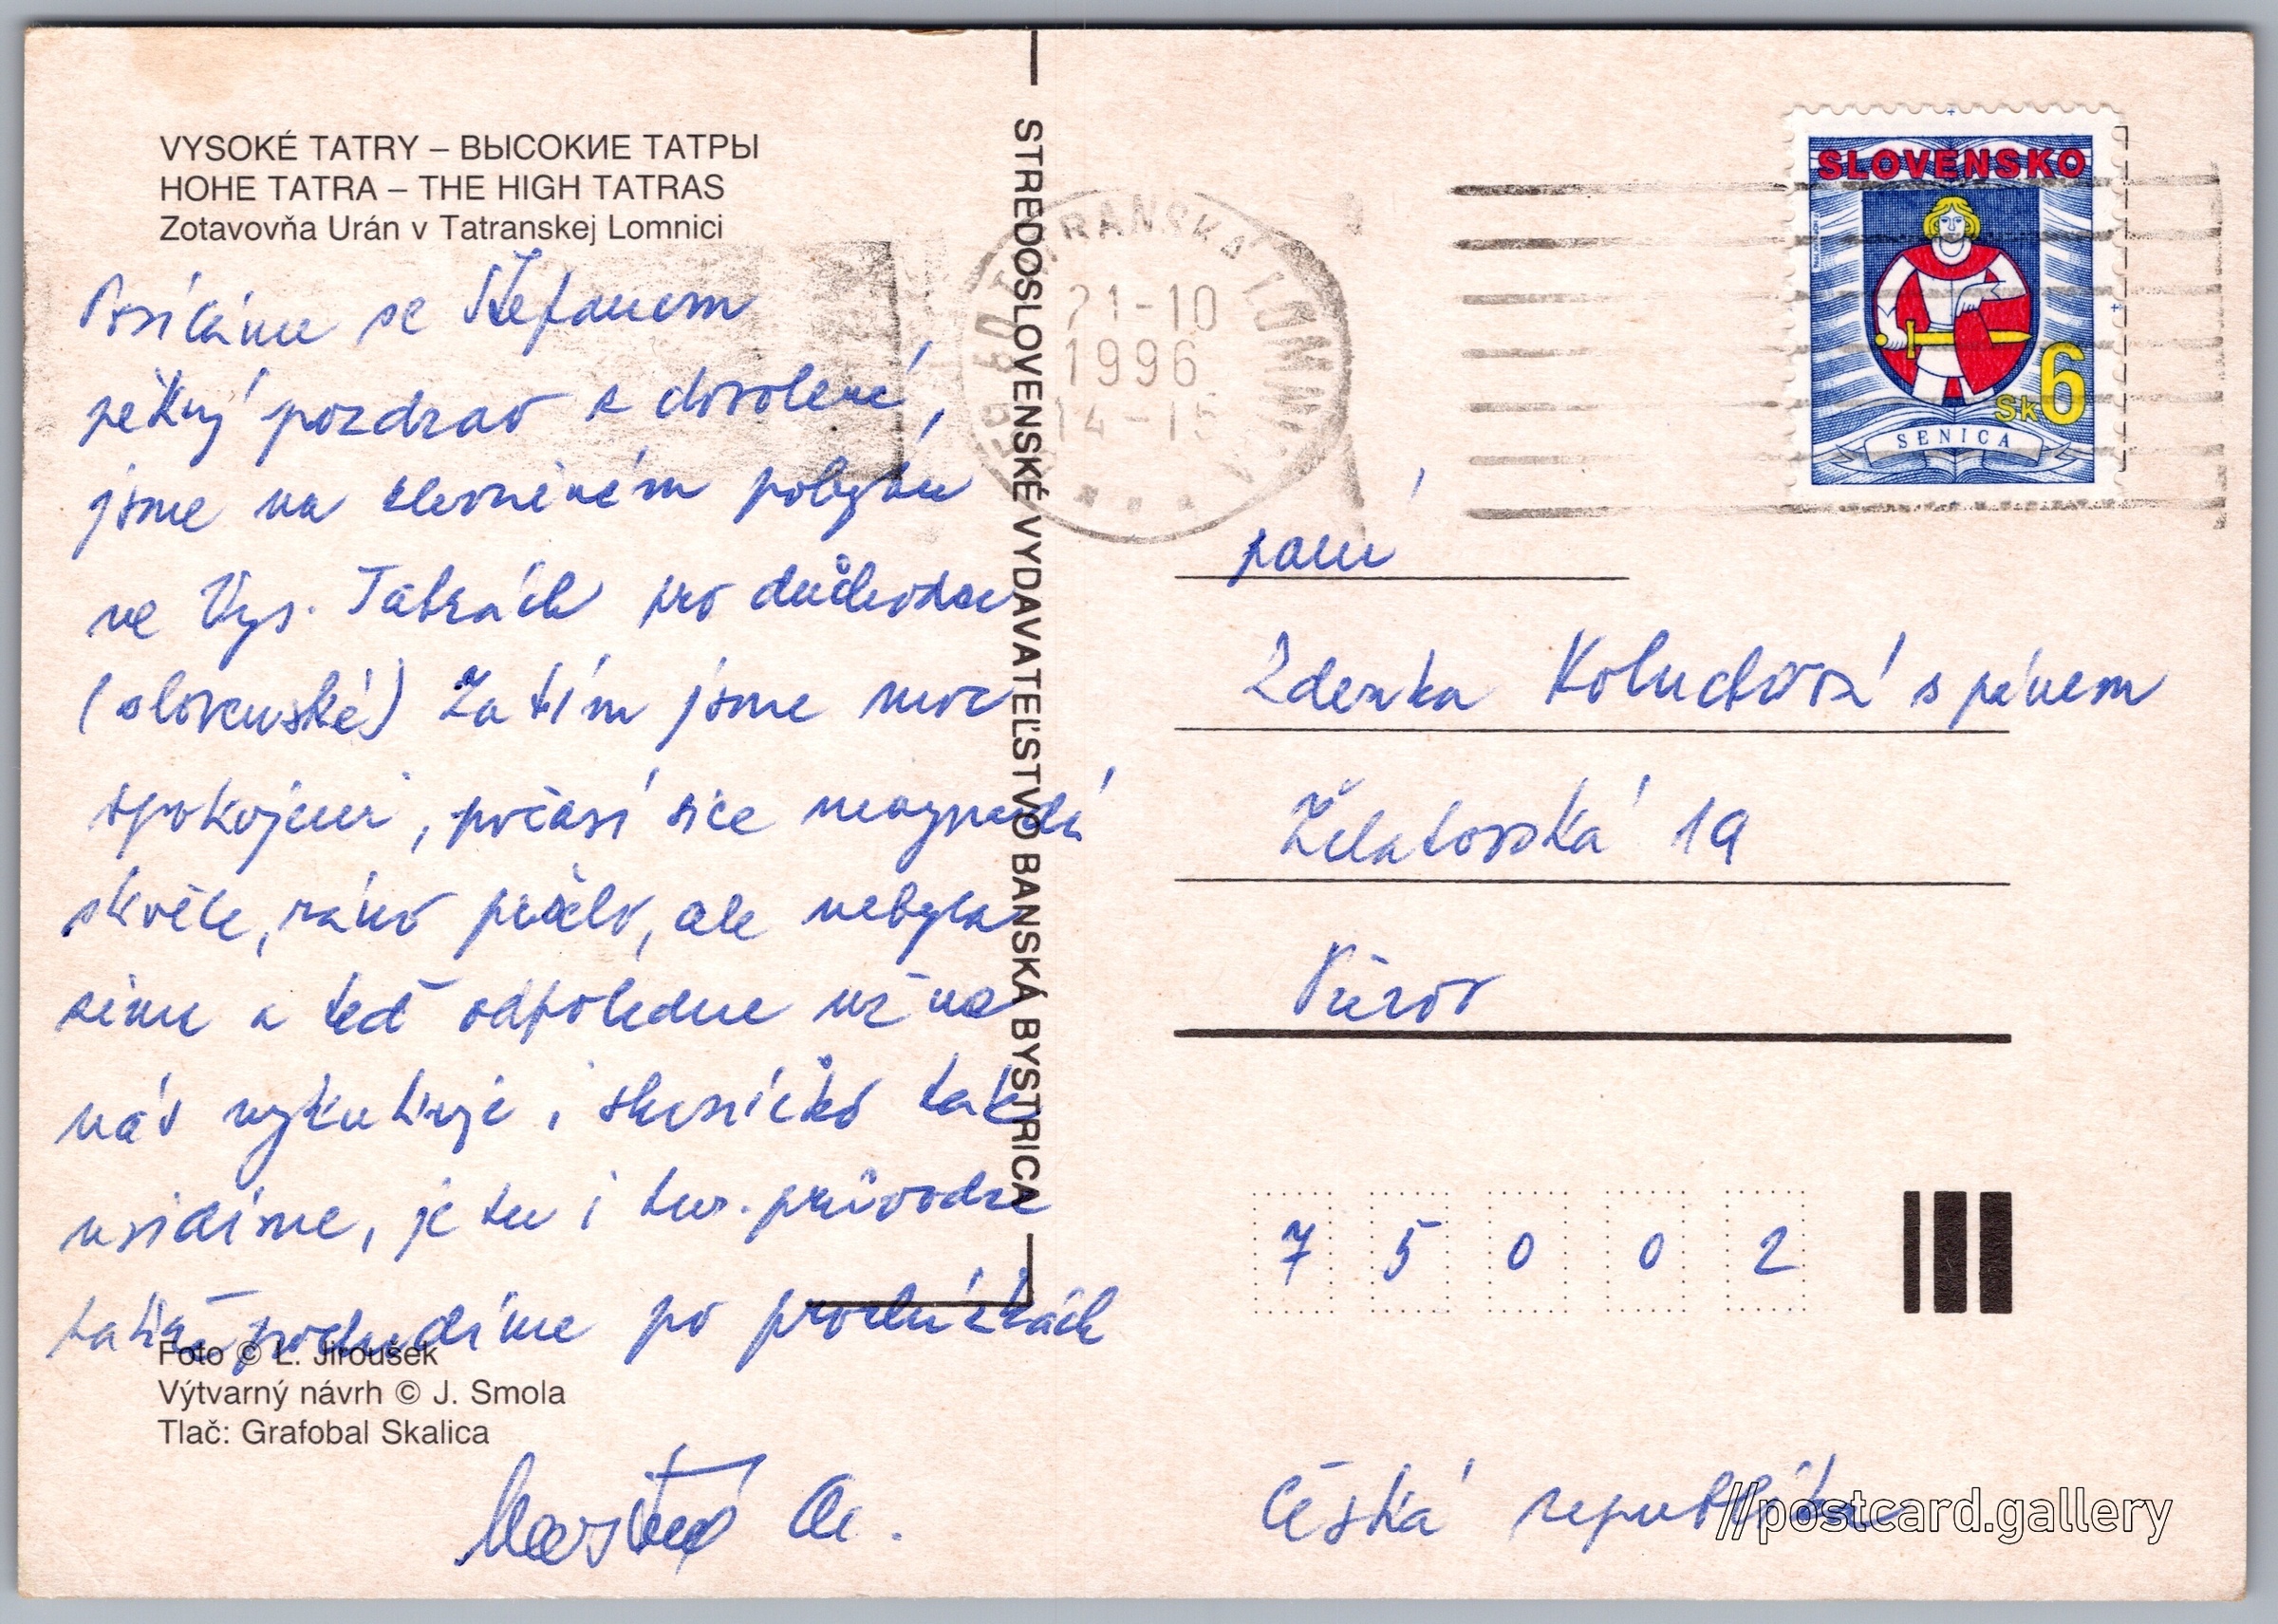 VYSOKÉ TATRY – ВЫСОКИЕ ТАТРЫ
HOHE TATRA – THE HIGH TATRAS
Zotavovňa Urán v Tatranskej Lomnici
Posíláme se Štefanem
pěkný pozdrav z dovolené,
jsme na slevněném pobytu
ve Vys. Tatrách pro důchodce
(slovenské) Zatím jsme moc
spokojeni, počasí sice nevypadá
skvěle, ráno pršelo, ale nebyla
zima a teď odpoledne už na
nás vykukuje i sluníčko tak
uvidíme, je tu i tur. průvodce
takže pochodíme po procházkách
Foto © L. Jiroušek
Výtvarný návrh © J. Smola
Tlač: Grafobal Skalica
STREDOSLOVENSKÉ VYDAVATEĽSTVO BANSKÁ BYSTRICA
TATRANSKÁ LOMNICA
21-10
1996
14-15
SLOVENSKO
Sk 6
SENICA
paní
Zdenka s pánem
Želatovská 19
Přerov
7 5 0 0 2
Česká republika
//postcard.gallery